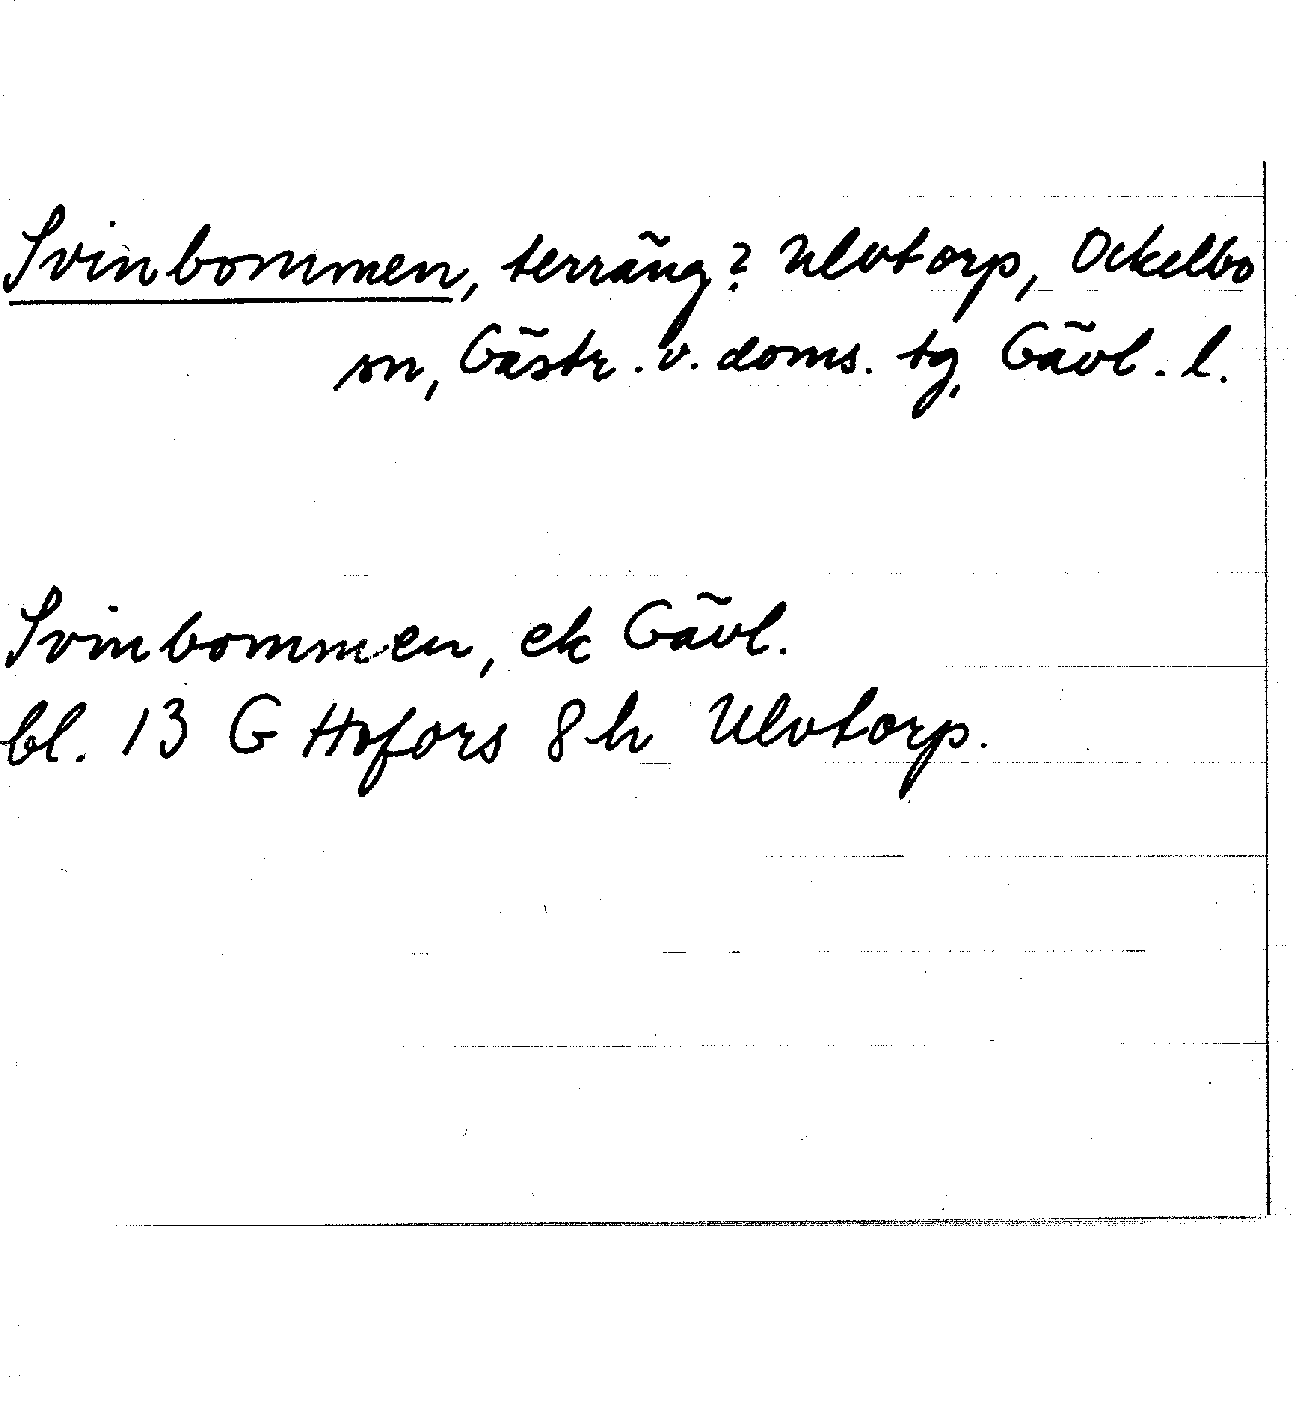 Svinbommen, terräng? Ulvtorp, Ockelbo
sn, Gästr. v. doms. tg, Gävl. l.
Svinbommen, ek Gävl.
bl. 13 G Hofors 8 h Ulvtorp.